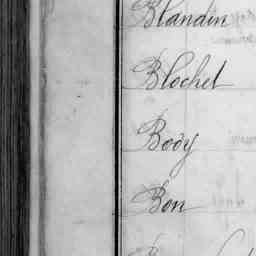 Blandin
Blochet
Body
Bon